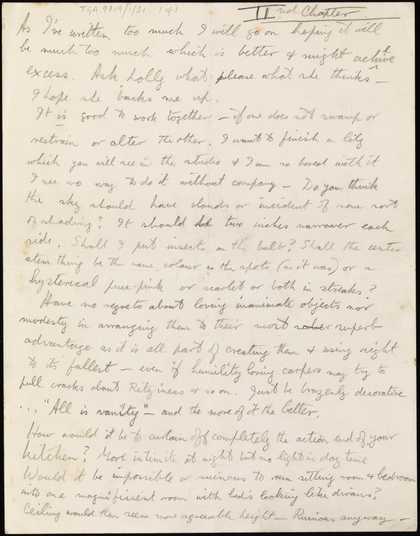 TGA 9709/1/31
II nd Chapter
As I've written too much I will go on hoping it will
be much too much which is better & might achieve
excess. Ask Lolly what, please what she thinks —
I hope she backs me up.
It is good to work together — if one does not swamp or
restrain or alter the other. I want to finish a lily
which you will see in the studio & I am so bored with it
I see no way to do it without company — Do you think
the sky should have clouds or incident of some sort
or shading? It should be two inches narrower each
side. Shall I put insects on the bulb? Shall the centre
stem thing be the same colour as the spots (as it was) or a
hysterical puce-pink or scarlet or both in streaks?
Have no regrets about loving inanimate objects nor
modesty in arranging them to their most superb
advantage as it is all part of creating them & using sight
to its fullest — even if humility loving carpers may try to
pull cracks about Ritziness & so on. Just be brazenly decorative
... "All is vanity" — and the more of it the better.
How would it be to curtain off completely the action end of your
kitchen? More intimate at night but no light in day time
Would it be impossible or ruinous to turn sitting room & bedroom
into one magnificent room with beds looking like divans?
Ceiling would then seem more agreeable height — Ruinous anyway —